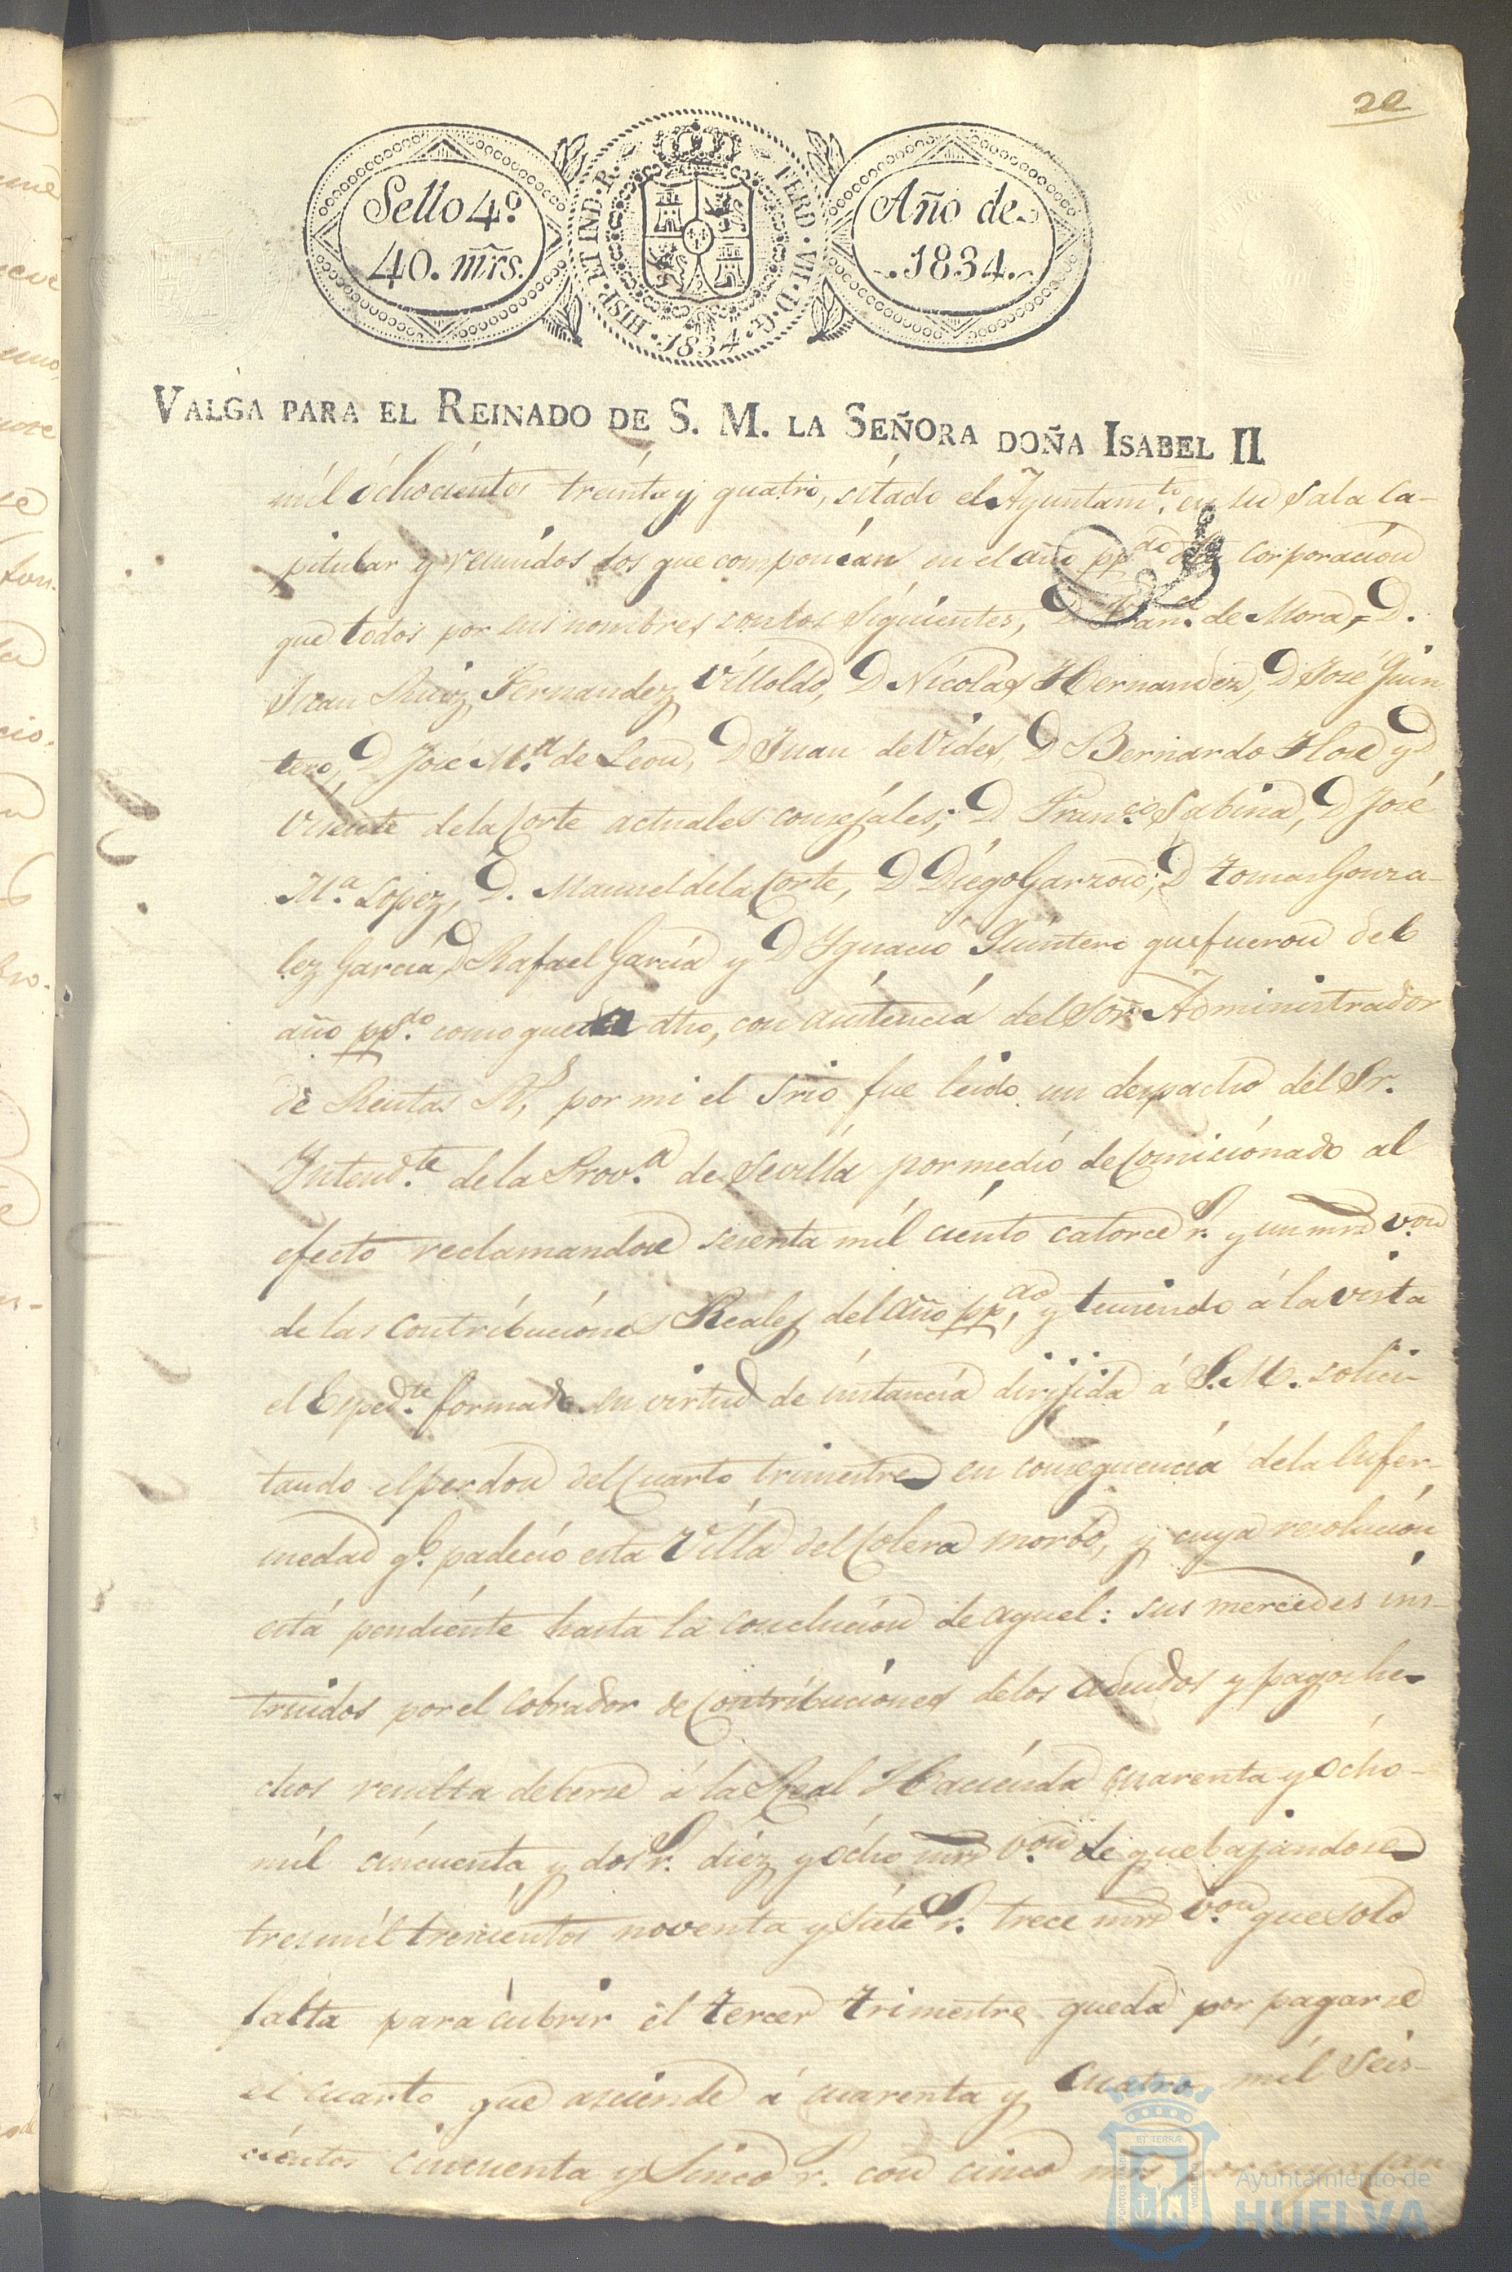 20
Sello 4º
40. mrs.
HISP. ET IND. R. FERD. VII. D. G. 1834.
Año de
1834.
VALGA PARA EL REINADO DE S. M. LA SEÑORA DOÑA ISABEL II
mil óchocientos treinta y quatro, sitado el Ayuntam.to en su Sala Ca-
pitular y reunidos los que componian en el año pp.do Corporacion
que todos por sus nombres son los Siguientes, D. Fran.co de Mora, D.
Juan Ruiz Fernandez Villoldo, D Nicolas Hernandez, D José Quin
tero, D José M.a de Leon, D Juan de Vides, D Bernardo Flore y D
Visente de la Corte actuales consejales; D Fran.co Sabina, D José
M.a Lopez, D. Manuel de la Corte, D Diego Garzon, D Tomas Gonza-
lez García, D Rafael García y D Ygnacio Quintero que fueron del
año pp.do como queda dho, con asistencia del Sor Administrador
de Rentas R.s por mi el Srio fue leido un despacho del Sr.
Yntend.te de la Prov.a de Sevilla por medio de Comicionado al
efecto reclamandose sesenta mil ciento catorce r.s y un mrs v.on
de las contribuciones Reales del año pp.do, y teniendo á la vista
el Exped.te formado en virtud de instancia dirijida á S.M. solici-
tando el perdon del Cuarto trimestre en consequencia de la Enfer-
medad q.e padecio esta Villa del Colera morbo, y cuya resolucion
está pendiente hasta la conclucion de aquel: sus mercedes ins-
truidos por el Cobrador de Contribuciones de los adeudos y pagos he-
chos resulta deberse á la Real Hacienda cuarenta y ocho-
mil cincuenta y dos r.s diez y ócho mrs v.on de que bajandose
tres mil trescientos noventa y siete r.s trece mrs v.on que solo
falta para cubrir el tercer trimestre queda por pagarse
el cuarto que asciende á cuarenta y cuatro mil Seis-
cientos cincuenta y Sinco r.s con cinco mrs por cuya
Ayuntamiento de
HUELVA